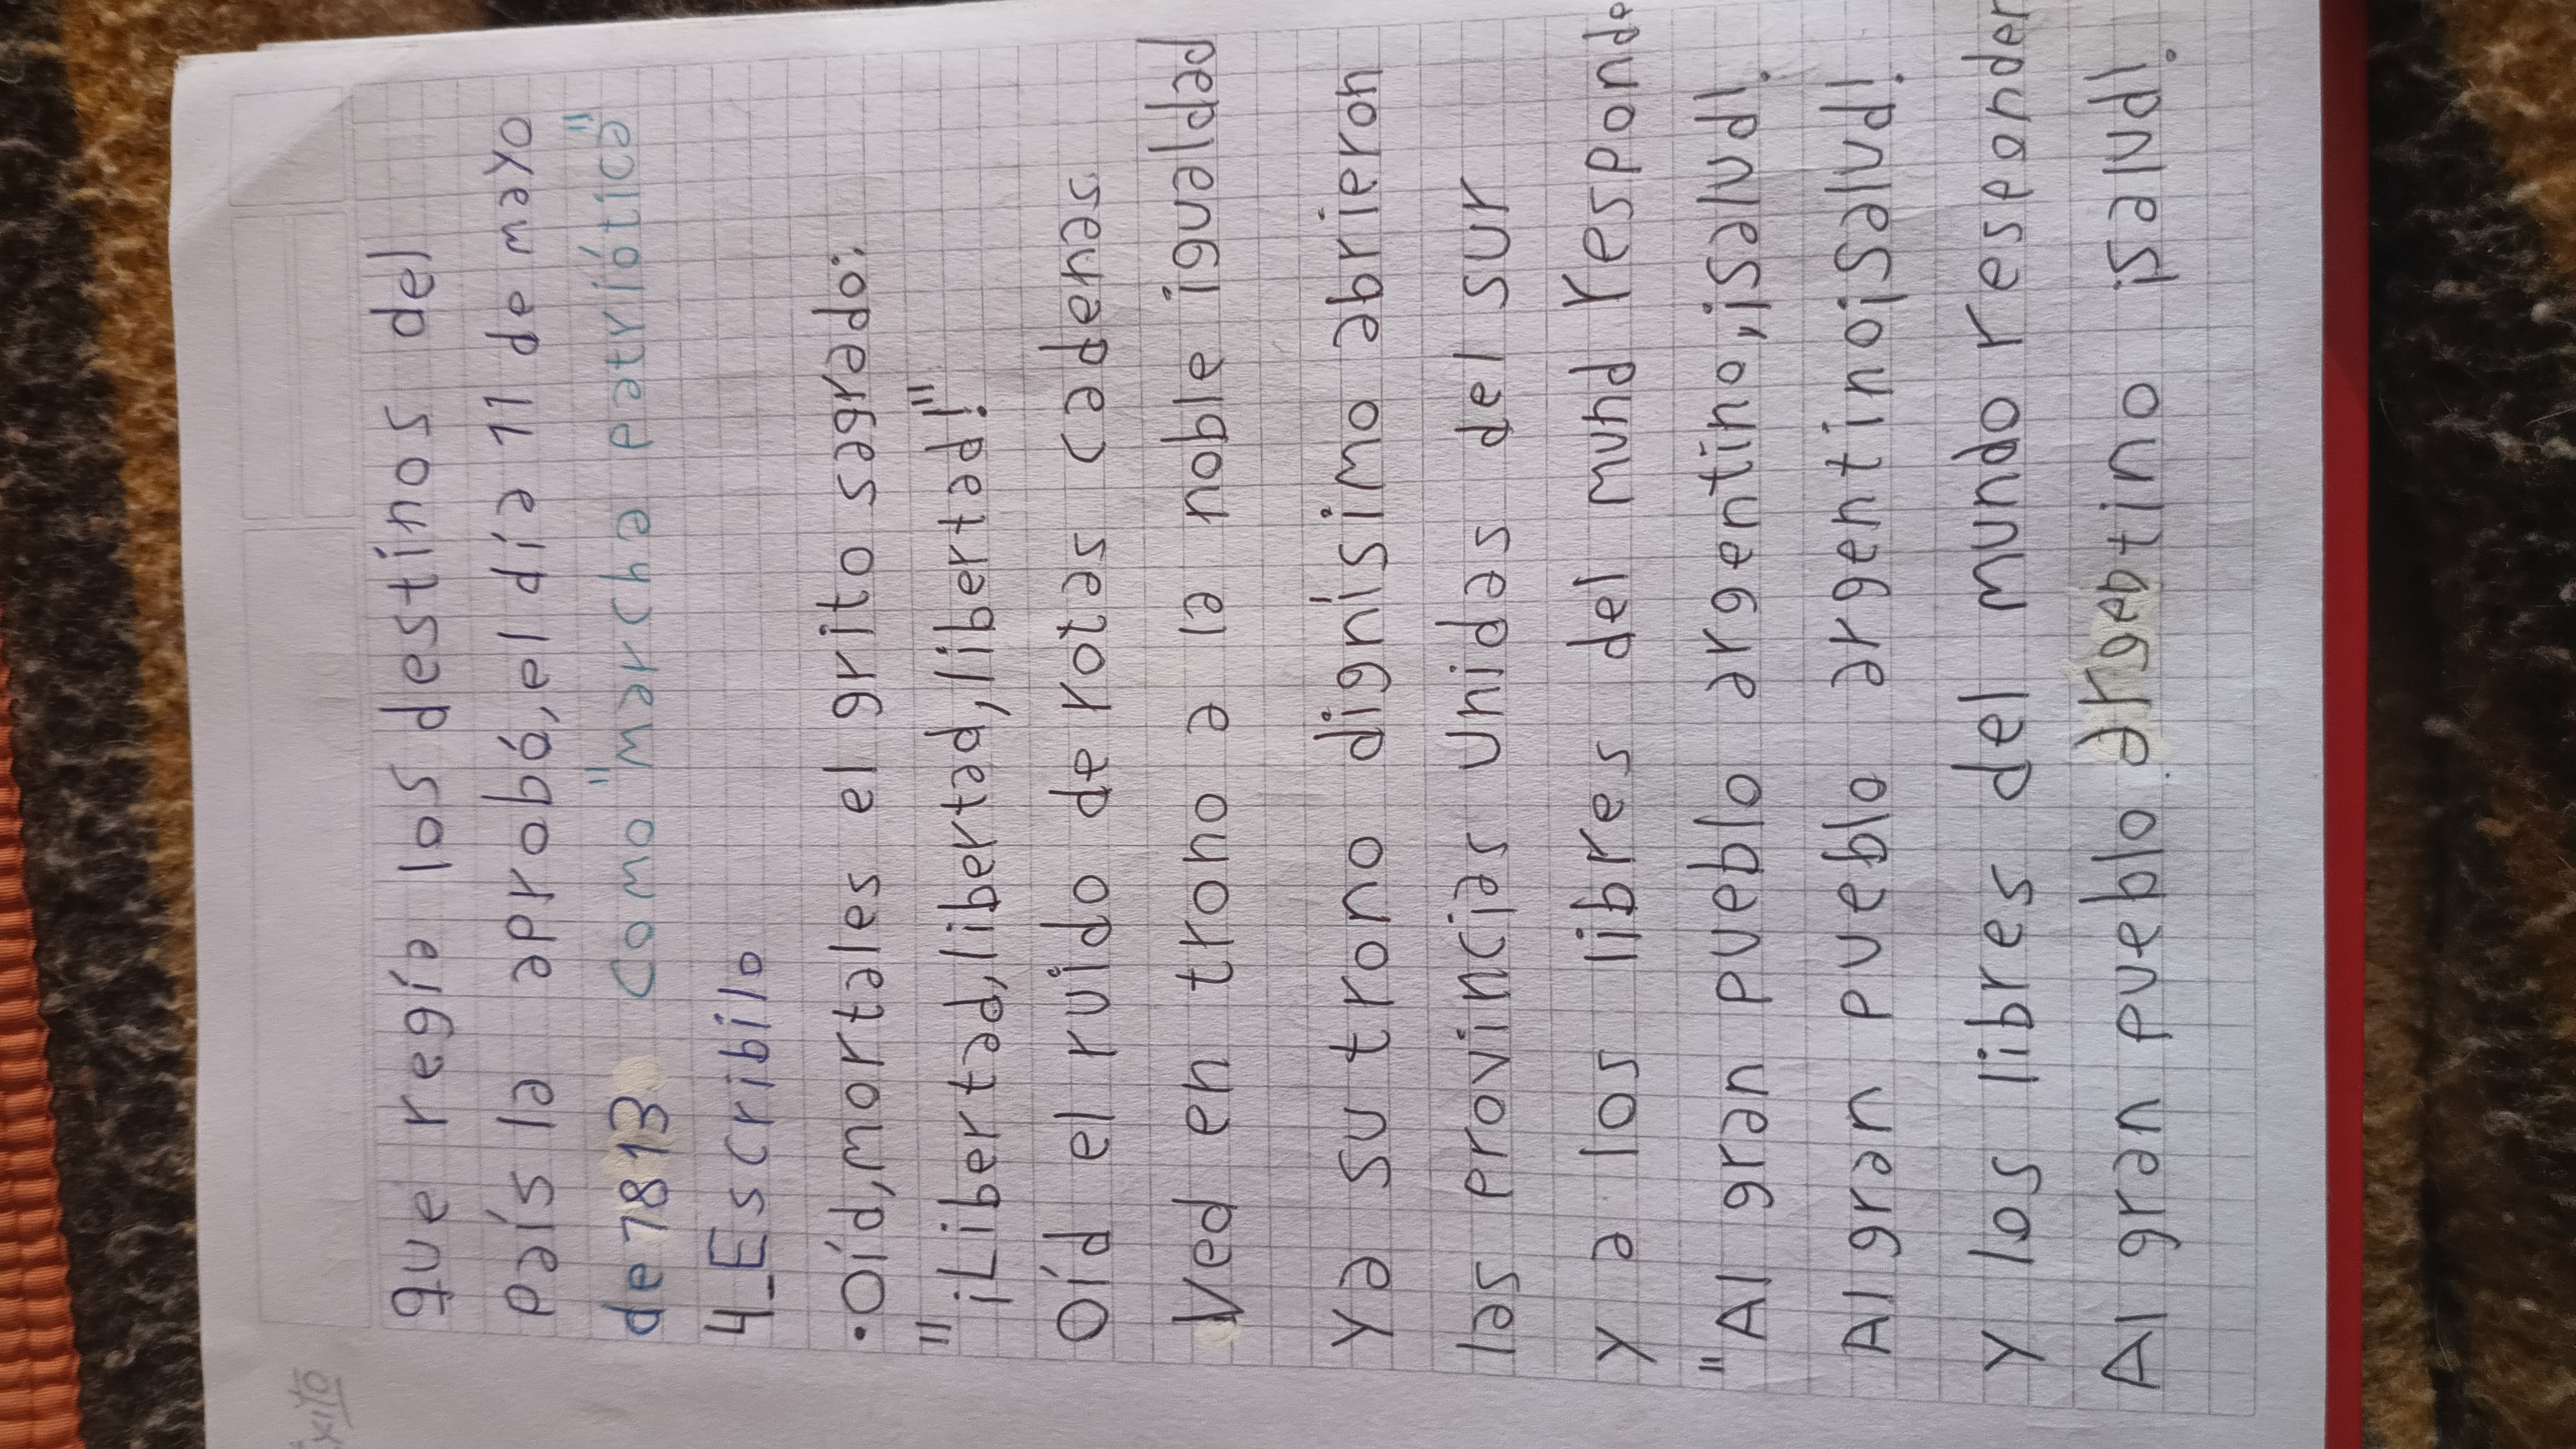 que regía los destinos del
país la aprobó, el día 11 de mayo
de 1813 como "marcha patriótica"
4_Escribilo
•Oíd, mortales el grito sagrado:
"¡Libertad, libertad, libertad!"
Oíd el ruido de rotas cadenas
Ved en trono a la noble igualdad
Ya su trono dignísimo abrieron
las provincias unidas del sur
Y a los libres del mund responde
"Al gran pueblo argentino, ¡salud!
Al gran pueblo argentino ¡Salud!
Y los libres del mundo responden
Al gran pueblo argebtino ¡Salud!
éxito